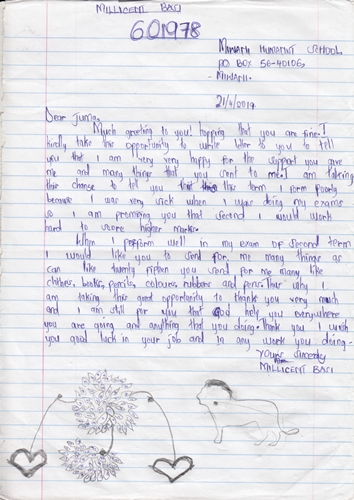 MILLICENT BACI
601978
SCHOOL.
P.O BOX 56-40106,
21/4/2014
Dear Juma,
Much greeting to you! hopping that you are fine. I
kindly take this opportunity to write later to you to tell
you that I am very very happy for the support you gave
me and many things that you sent to me. I am taking
this chance to tell you this term I form poorly
because I was very sick when I was doing my exams
so I am promising you that second I would work
hard to score higher marks.
When I perform well in my exam of second term
I would like you to send for me many things as
can like twenty fifteen you send for me many like
clothes, books, pencils, colours, rubbers and pens. Thus why I
am taking this good opportunity to thank you very much
and I am still for you that God help you everywhere
you are going and anything that you doing. Thank you I wish
you good luck in your job and to any work you doing.
Yours sincerely
MILLICENT BACI